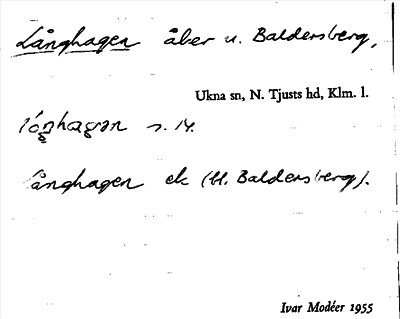 Långhagen åker u. Baldersberg,
Ukna sn, N. Tjusts hd, Klm. l.
lóŋhagən s. 14.
Långhagen ek (U. Baldersberg).
Ivar Modéer 1955